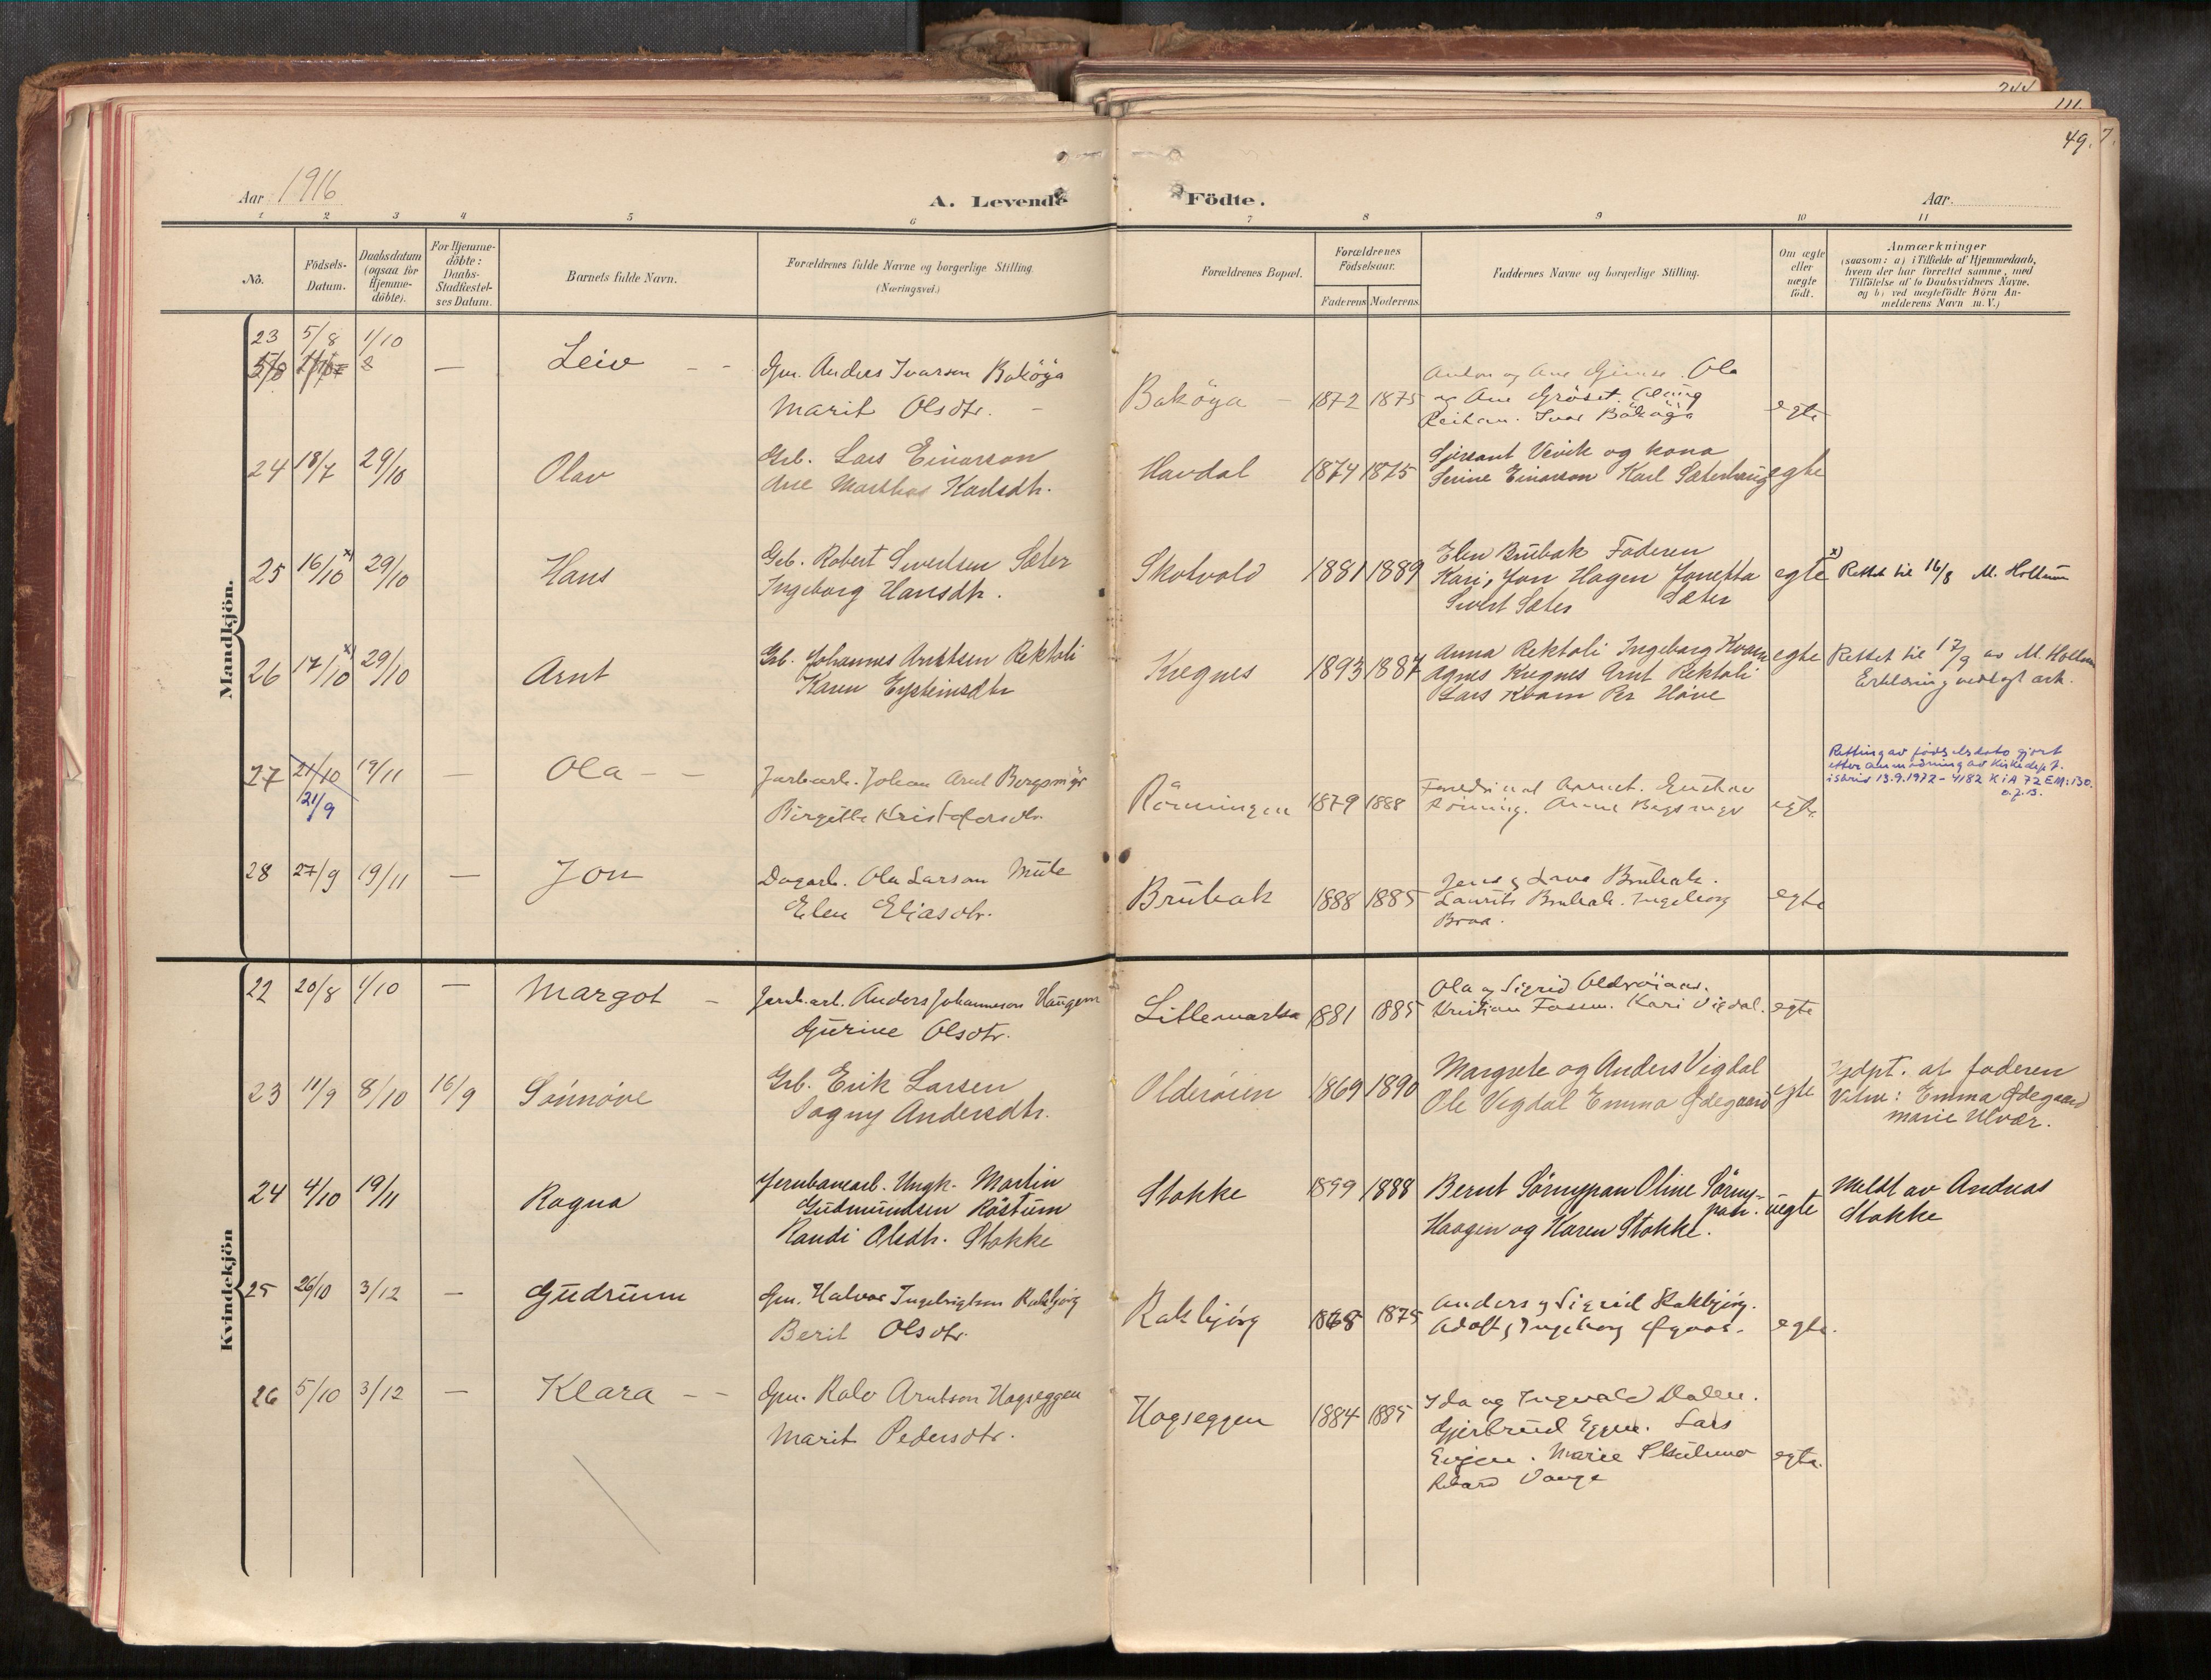 244
111.
49. 7.
Aar 1916
A. Levende Födte.
Aar.
1 2 3 4 5 6 7 8 9 10 11
No.
Födsels-
Datum.
Daabsdatum
(ogsaa for
Hjemme-
döbte).
For Hjemme-
döbte:
Daabs-
Stadfæstel-
ses Datum.
Barnets fulde Navn.
Forældrenes fulde Navne og borgerlige Stilling.
(Næringsvei.)
Forældrenes Bopæl.
Forældrenes
Födselsaar.
Faderens Moderens
Faddernes Navne og borgerlige Stilling.
Om ægte
eller
uægte
födt.
Anmærkninger
(saasom: a) i Tilfælde af Hjemmedaab,
hvem der har forrettet samme, med
Tilföielse af to Daabsvidners Navne.
og b) ved uægtefödte Börn An-
melderens Navn m. V.)
Mandkjön.
23 5/8 1/10
— Leiv — -
Gm. Anders Ivarson Boköya
Marit Olsdtr. -
Boköya - 1872 1875
Anton og Ane Gimse. Ola
og Ane Gröset.
Ivar Boköya
egte
24 18/7 29/10 Olav
Grb. Lars Einarson
Ane Marthas Karlsdtr.
Havdal 1874 1875
Sjersant Vevik og kona
Serine Einarson Karl Sæterhaug egte
25 16/10 x) 29/10 Hans
Grb. Robert Sivertsen Sæter
Ingeborg Hansdtr.
Skotvold 1881 1889
Elen Brubak Faderen
Kari, Jon Hagen Jonetta
Sivert Sæter Sæter
egte x) Rettet til 16/8 M. Hollum
26 17/10 x) 29/10 Arnt
Grb. Johannes Arntsen Rektoli
Karen Eysteinsdtr
Kregnes 1893 1887
Anna Rektoli Ingeborg Kvam
Agnes Kregnes Arnt Rektoli
Lars Kvam Per Hove
egte Rettet til 17/9 av M. Hollum
Erklæring vedlagt ark.
27 21/10 19/11 — Ola - -
21/9
Jarbarb. Johan Arnt Bergsmyr
Birgitte Kristofersdtr.
Rönningen 1879 1888
Gustav
Rönning. Anne Bergsmyr
egte
Retting av fødselsdato gjort
etter anmodning av Kirkedept.
i skriv 13.9.1972 - 4182 K i A 72 EM: i30.
28 27/9 19/11 — Jon
Dagarb. Ola Larson Mule
Elen Eliasdtr.
Brubak 1888 1885
Jens og Brubak.
Laurits Brubak. Ingeborg
Braa.
egte
Kvindekjön
22 20/8 1/10 — Margot -
Jernb.arb. Anders Johanneson Haugen
Gurine Olsdtr.
Litlemarka 1881 1885
Ola og Sigrid Olderöiaas.
Kristian Fossem. Kari Vigdal. egte
23 11/9 8/10 16/9 Sönnöve
Grb. Erik Larsen
Dagny Andersdtr.
Olderöien 1869 1890
Margrete og Anders Vigdal
Ole Vigdal Emma Ødegaard egte
Hjdpt. at faderen
Vitne: Emma Ødegaard
Marie Ulvær.
24 4/10 19/11 Ragna
Jernbanearb. Ungk. Martin
Gudmundsen Röstum
Randi Olsdtr. Stokke
Stokke 1899 1888
Bernt Sörnypan Oline Sörny-
pan. uegte
Haagen og Karen Stokke.
Meldt av Andreas
Stokke
25 26/10 3/12 — Gudrunn
Gm. Halvor Ingebrigtson Rakbjörg
Berit Olsdtr.
Rakbjörg 1868 1875
Anders og Sigrid Rakbjörg.
Adolf og Ingeborg Øyaas. egte.
26 5/10 3/12 — Klara - -
Gm. Ralv Arntson Hogseggen
Marit Pedersdtr.
Hogseggen 1884 1885
Ida og Ingvald Dalen.
Gjertrud Eggen. Lars
Evjen. Marie
Rikard Vange
egte.